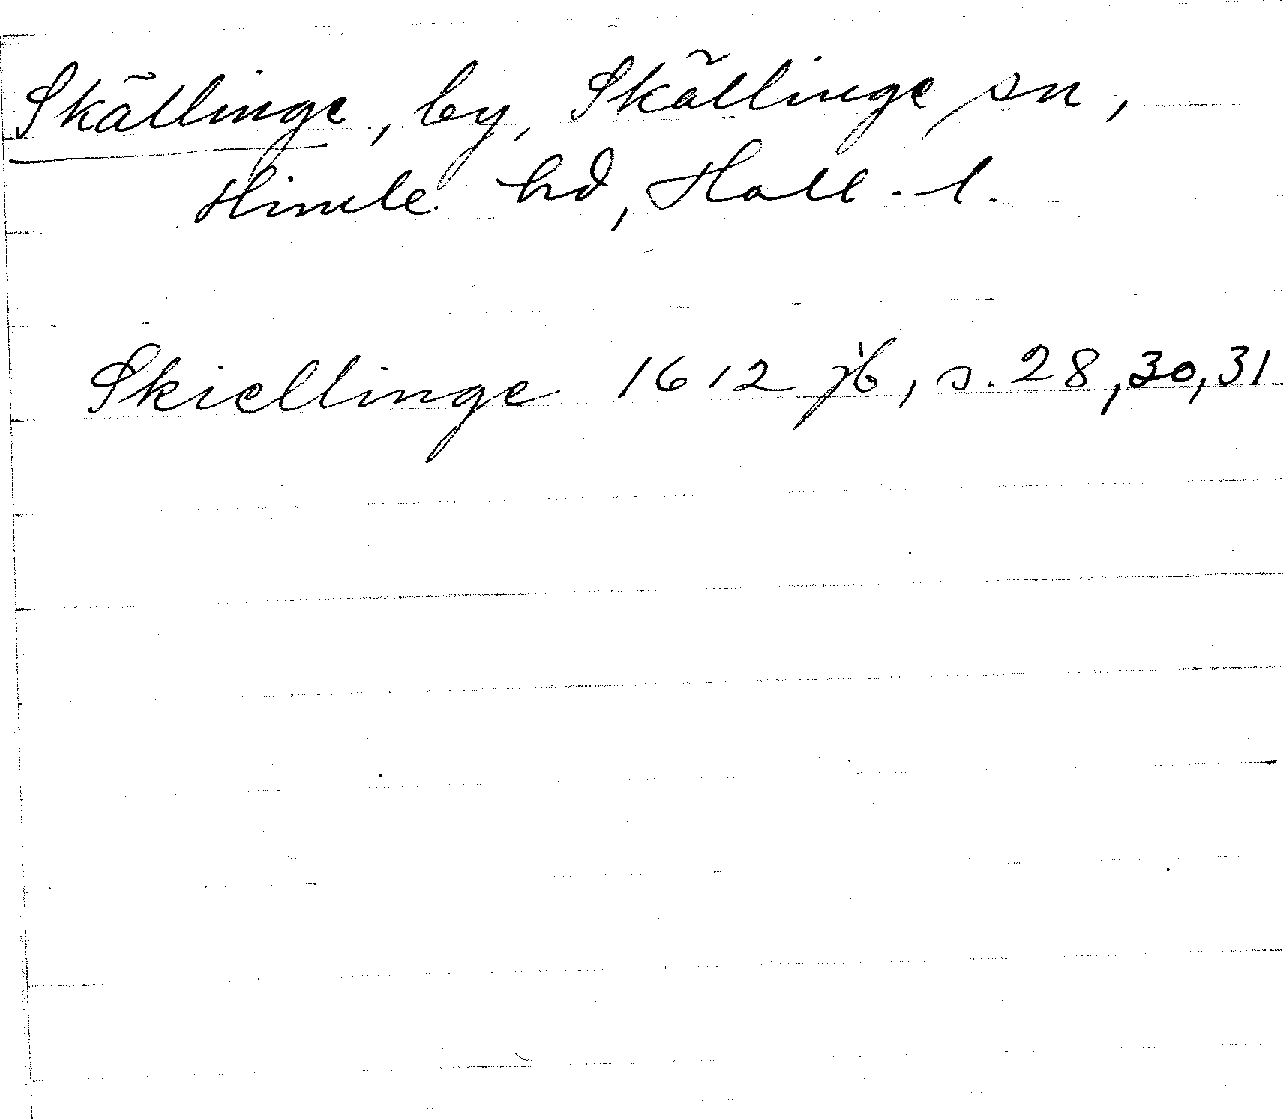 Skällinge, by, Skällinge sn,
Himle hd, Hall. l.
Skiellinge 1612 jb, s. 28, 30, 31